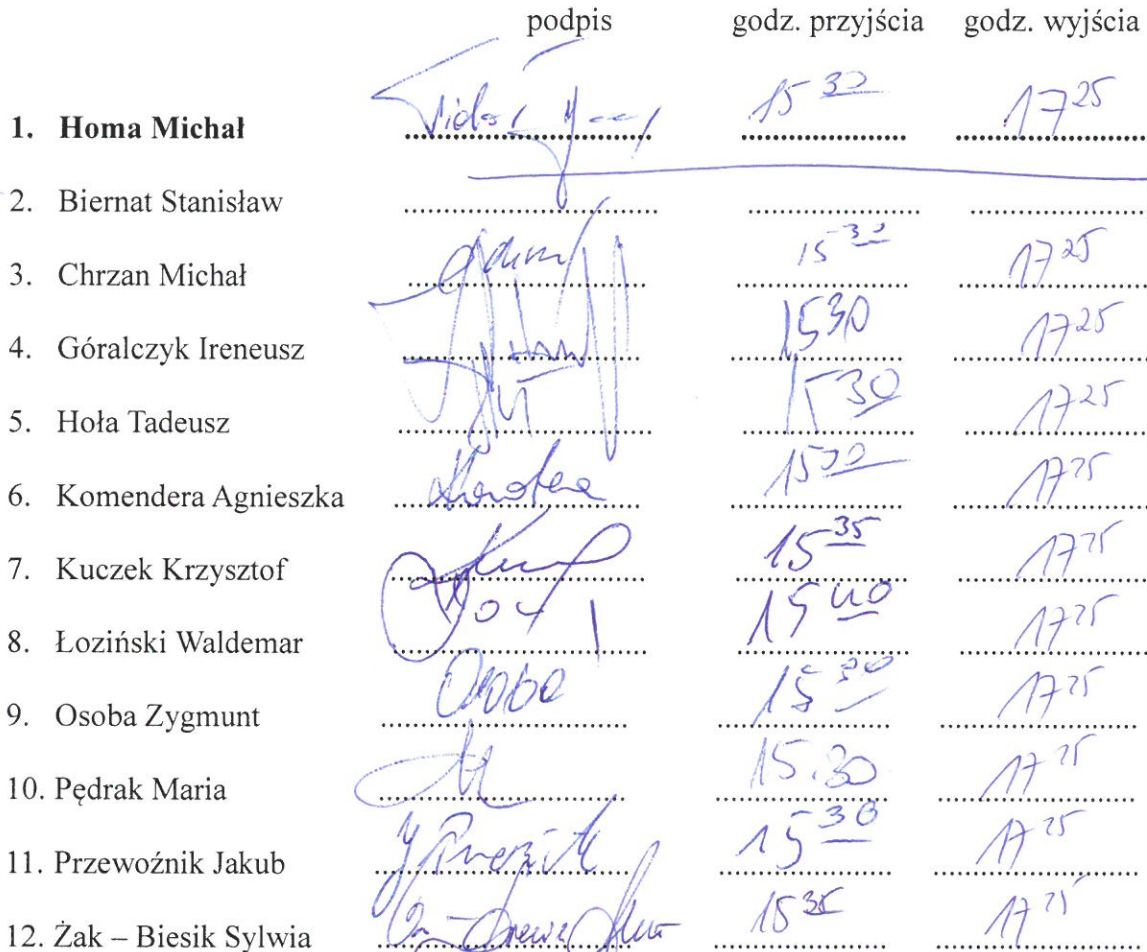 podpis godz. przyjścia godz. wyjścia
1. Homa Michał 15 30 17 25
2. Biernat Stanisław
3. Chrzan Michał 15 30 17 25
4. Góralczyk Ireneusz 15 30 17 25
5. Hoła Tadeusz 15 30 17 25
6. Komendera Agnieszka 15 30 17 25
7. Kuczek Krzysztof 15 35 17 25
8. Łoziński Waldemar 15 40 17 25
9. Osoba Zygmunt Osoba 15 30 17 25
10. Pędrak Maria 15.30 17 25
11. Przewoźnik Jakub 15 30 17 25
12. Żak – Biesik Sylwia 15 35 17 25